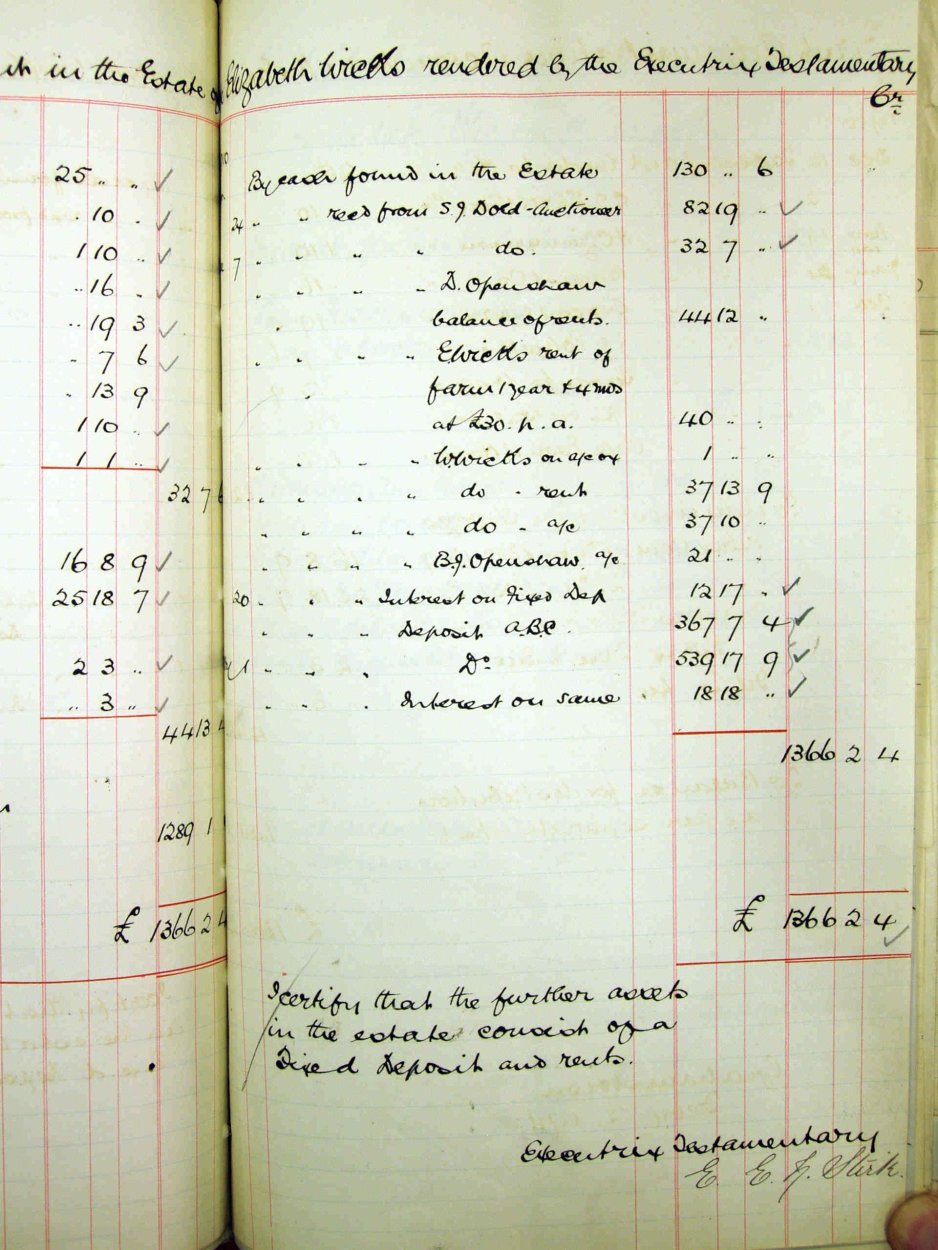 in the Estate of Elizabeth Wicks rendered by the Executrix Testamentary
Cr
25 " "
" 10 "
1 10 "
" 16 "
" 19 3
" 7 6
" 13 9
1 10 "
1 1 "
32 7 6
16 8 9
25 18 7
2 3 "
" 3 "
44 13 4
1289 1
£ 1366 2 4
By cash found in the Estate 130 " 6
24 " " recd from S.J. Dold - Auctioneer 82 19 "
7 " " " " do. 32 7 "
" " " " D. Openshaw
" balance of rents. 44 12 "
" " " " E Wicks rent of
" farm 1 year & 4 mos
at £30. p. a. 40 " "
" " " " W Wicks on a/c ox 1 " "
" " " " do - rent 37 13 9
" " " " do - a/c 37 10 "
" " " " B.J. Openshaw a/c 21 " "
20 " " " Interest on Fixed Dep 12 17 "
" " " Deposit A.B.C. 367 7 4
" " " Do 539 17 9
" " " Interest on same 18 18 "
1366 2 4
£ 1366 2 4
I certify that the further assets
in the estate consist of a
Fixed Deposit and rents.
Executrix Testamentary
E. E. Stirk.